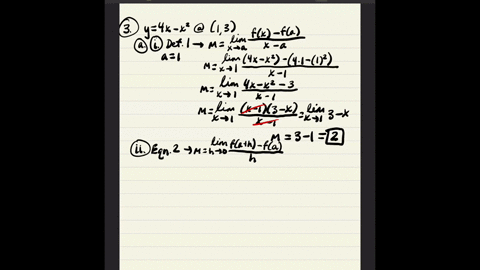 3. y=4x-x² @ (1,3)
a i Def. 1 → m = lim x→a f(x)-f(a) / x-a
a=1 m = lim x→1 (4x-x²)-(4·1-(1)²) / x-1
m = lim x→1 4x-x²-3 / x-1
m = lim x→1 (x-1)(3-x) / x-1 = lim x→1 3-x
m = 3-1 = 2
ii. Eqn. 2 → m = lim h→0 f(a+h)-f(a) / h